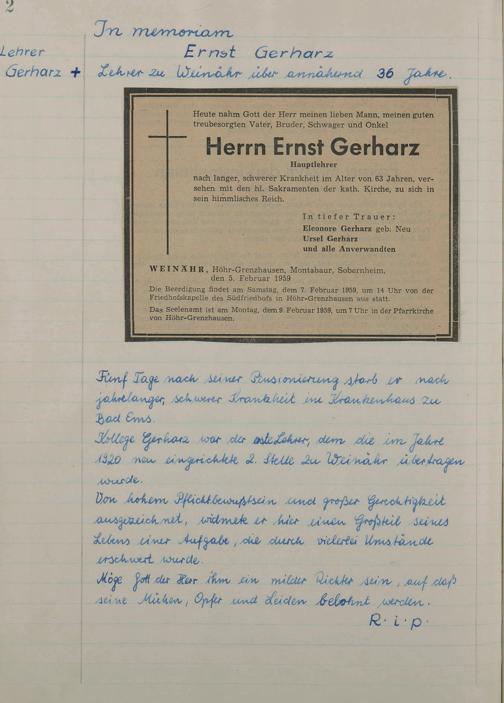 2
In memoriam
Ernst Gerharz
Lehrer
Gerharz +
Lehrer zu Weinähr über annähernd 36 Jahre.
Heute nahm Gott der Herr meinen lieben Mann, meinen guten
treubesorgten Vater, Bruder, Schwager und Onkel
Herrn Ernst Gerharz
Hauptlehrer
nach langer, schwerer Krankheit im Alter von 63 Jahren, ver-
sehen mit den hl. Sakramenten der kath. Kirche, zu sich in
sein himmlisches Reich.
In tiefer Trauer:
Eleonore Gerharz geb. Neu
Ursel Gerharz
und alle Anverwandten
WEINÄHR, Höhr-Grenzhausen, Montabaur, Sobernheim,
den 5. Februar 1959
Die Beerdigung findet am Samstag, dem 7. Februar 1959, um 14 Uhr von der
Friedhofskapelle des Südfriedhofs in Höhr-Grenzhausen aus statt.
Das Seelenamt ist am Montag, dem 9. Februar 1959, um 7 Uhr in der Pfarrkirche
von Höhr-Grenzhausen.
Fünf Tage nach seiner Pensionierung starb er nach
jahrelanger, schwerer Krankheit im Krankenhaus zu
Bad Ems.
Kollege Gerharz war der erste Lehrer, dem die im Jahre
1920 neu eingerichtete 2. Stelle zu Weinähr übertragen
wurde.
Von hohem Pflichtbewußtsein und großer Gerechtigkeit
ausgezeichnet, widmete er hier einen Großteil seines
Lebens einer Aufgabe, die durch vielerlei Umstände
erschwert wurde.
Möge Gott der Herr ihm ein milder Richter sein, auf daß
seine Mühen, Opfer und Leiden belohnt werden.
R. i. p.